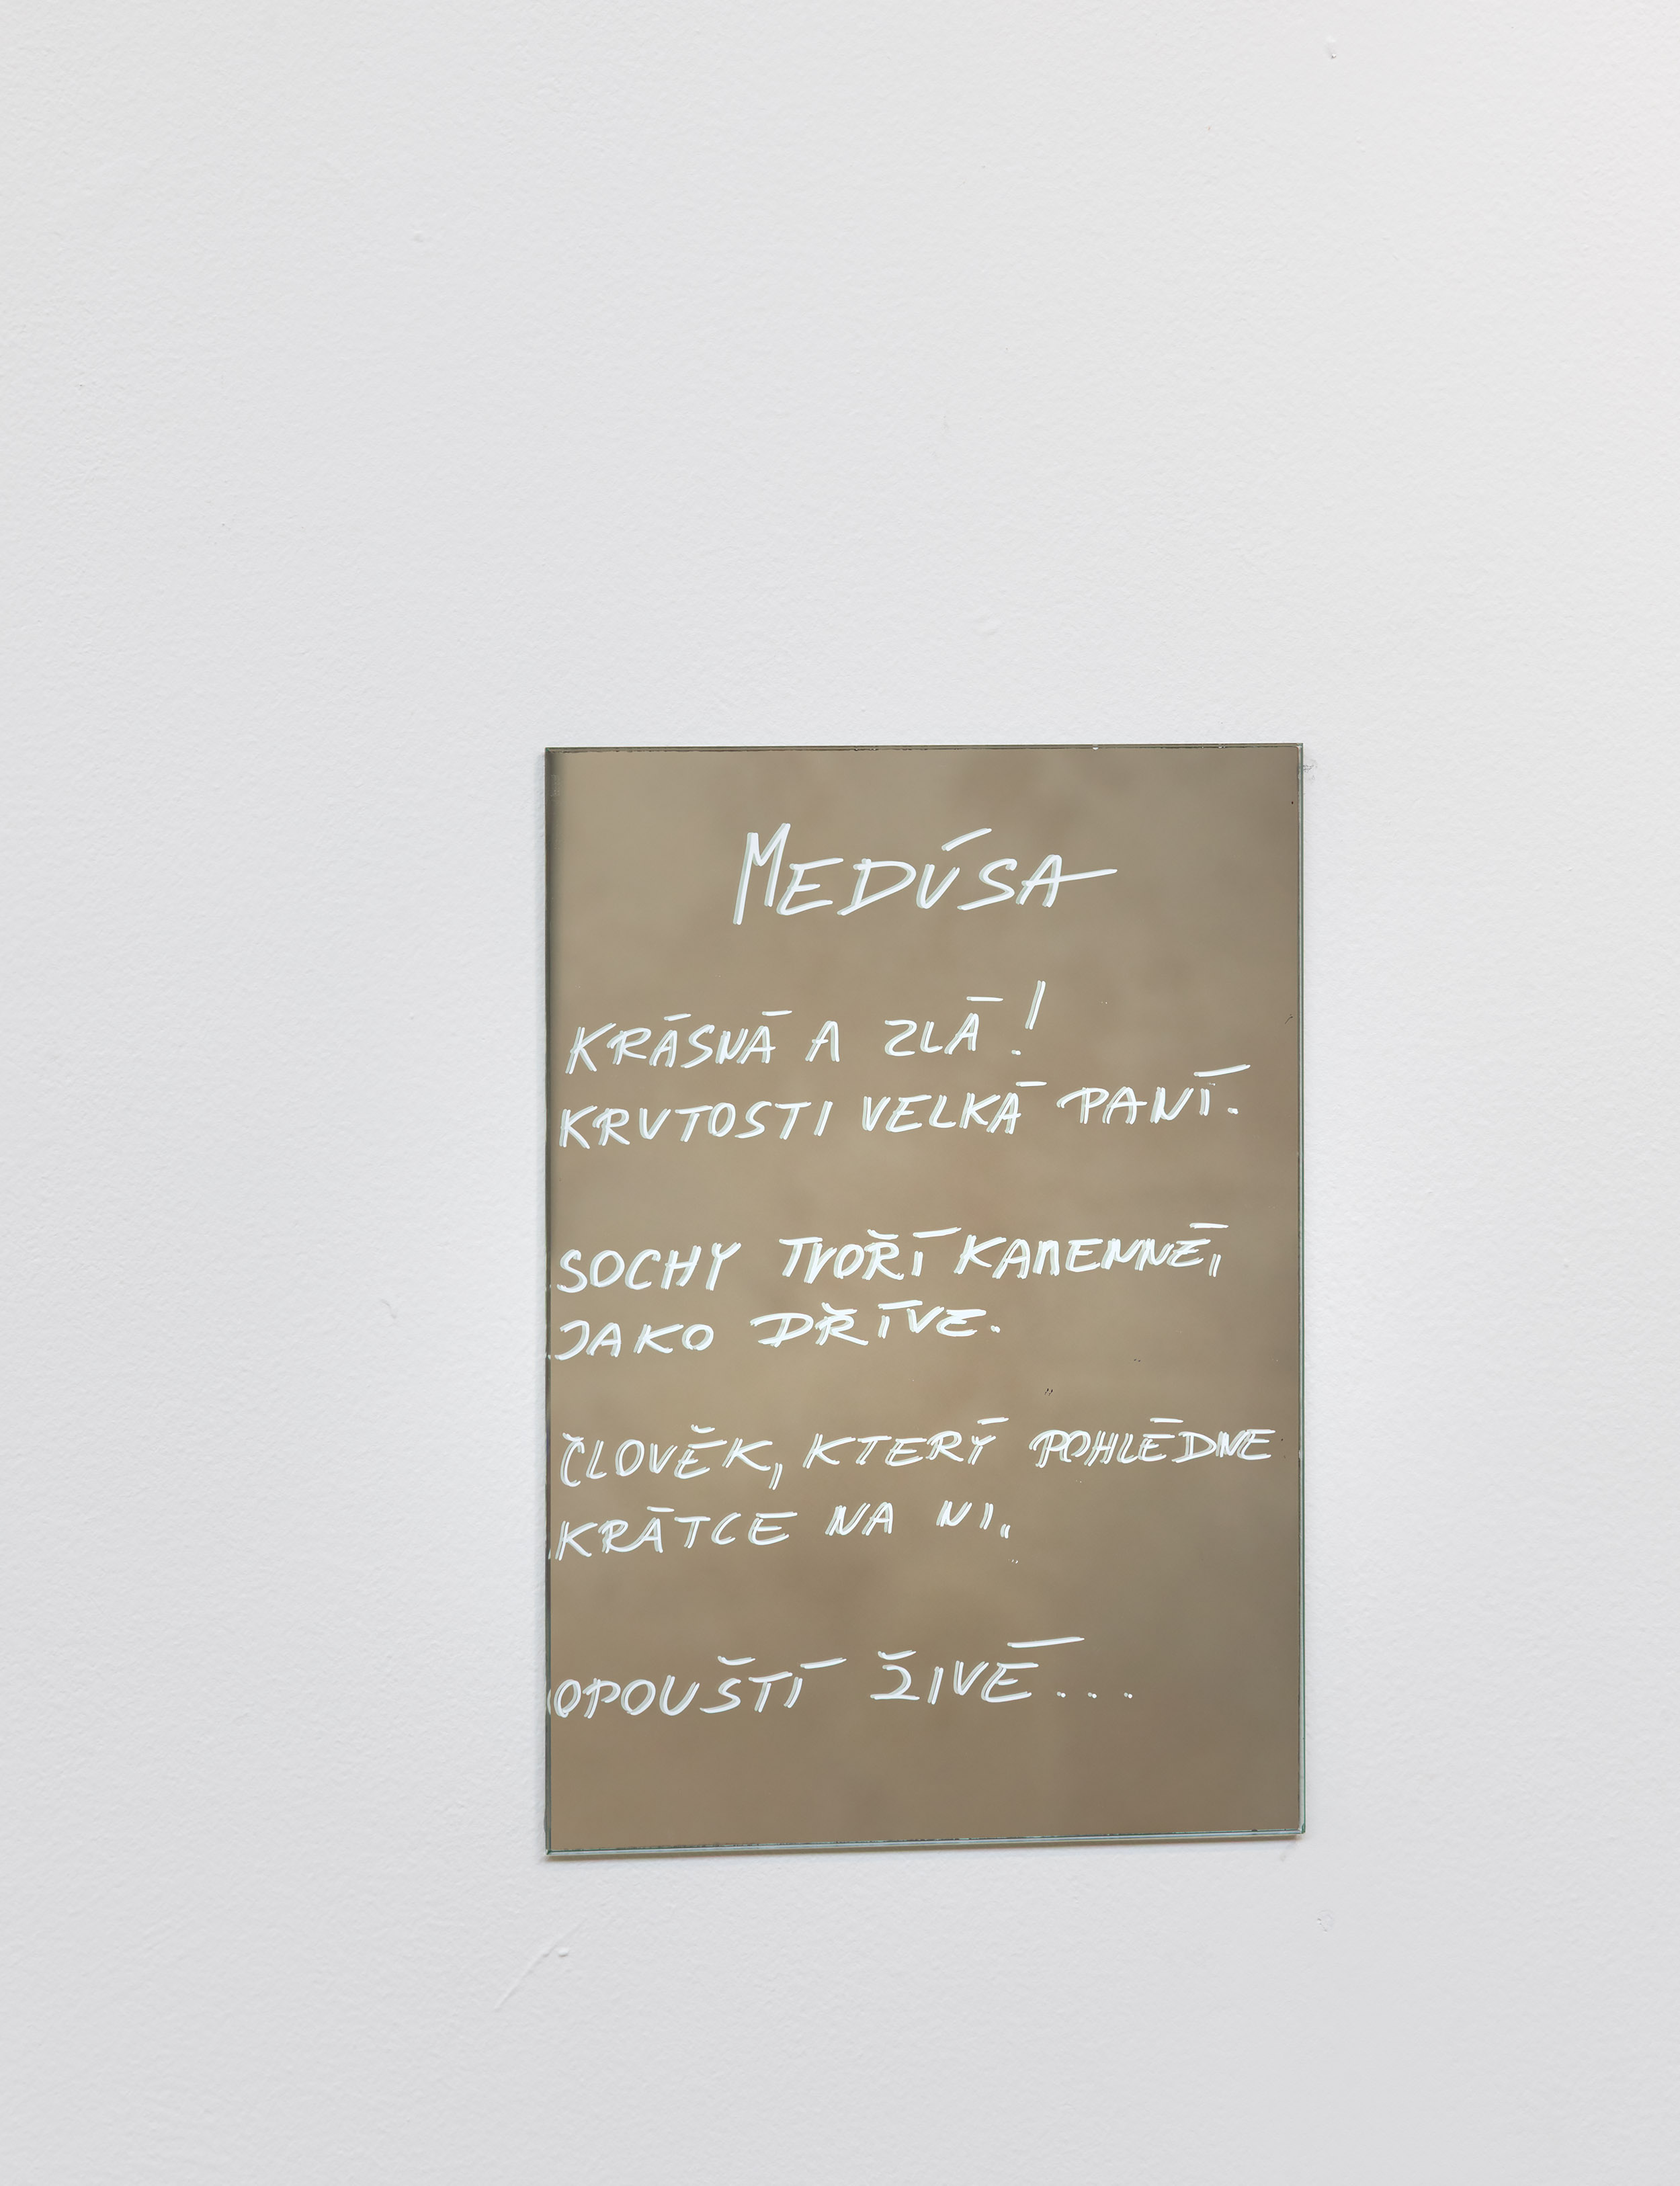 MEDÚSA
KRÁSNÁ A ZLÁ!
KRUTOSTI VELKÁ PANÍ.
SOCHY TVOŘÍ KAMENNÉ,
JAKO DŘÍVE.
ČLOVĚK, KTERÝ POHLÉDNE
KRÁTCE NA NI,
OPOUŠTÍ ŽIVÉ...